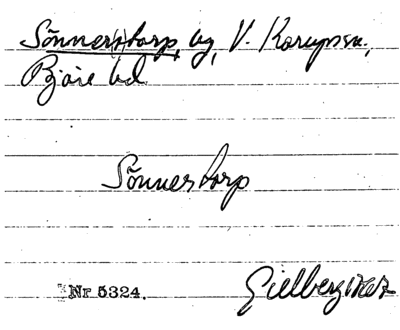 Sönner(s)torp, by, V. Karups sn.,
Bjäre hd
Sönnerstorp
Nr 5324.
Gillberg